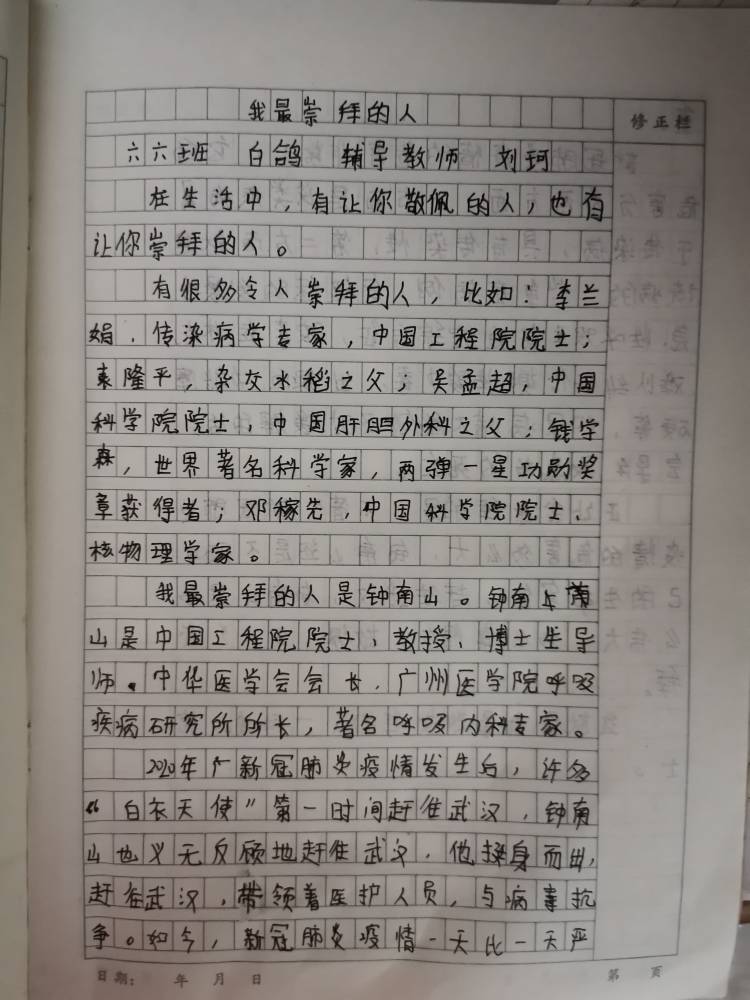 我最崇拜的人
修正栏
六六班 白鸽 辅导教师 刘珂
在生活中，有让你敬佩的人，也有
让你崇拜的人。
有很多令人崇拜的人，比如：李兰
娟，传染病学专家，中国工程院院士；
袁隆平，杂交水稻之父；吴孟超，中国
科学院院士，中国肝胆外科之父；钱学
森，世界著名科学家，两弹一星功勋奖
章获得者；邓稼先，中国科学院院士、
核物理学家。
我最崇拜的人是钟南山。钟南
山是中国工程院院士、教授、博士生导
师。中华医学会会长，广州医学院呼吸
疾病研究所所长，著名呼吸内科专家。
2020年新冠肺炎疫情发生后，许多
“白衣天使”第一时间赶往武汉，钟南
山也义无反顾地赶往武汉，他挺身而出，
赶往武汉，带领着医护人员，与病毒抗
争。如今，新冠肺炎疫情一天比一天严
日期： 年 月 日
第 页